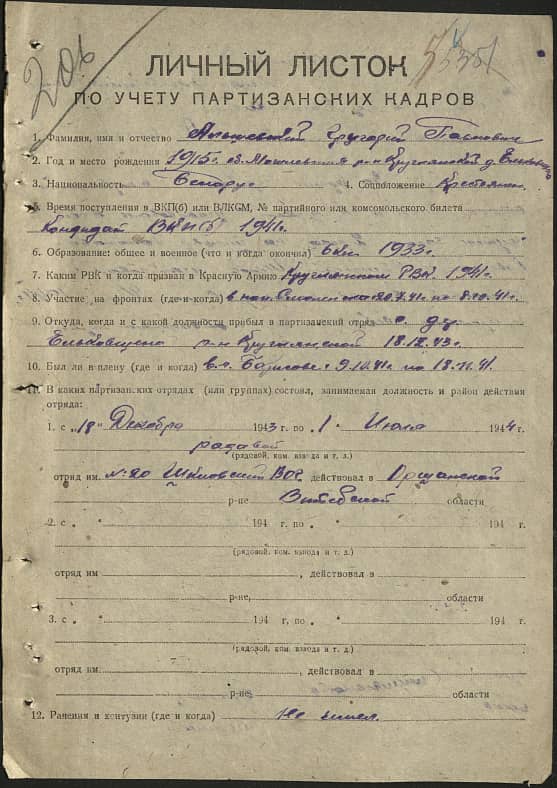 206
ЛИЧНЫЙ ЛИСТОК
ПО УЧЕТУ ПАРТИЗАНСКИХ КАДРОВ
1. Фамилия, имя и отчество Григорий Павлович
2. Год и место рождения 1915 г.
3. Национальность Беларус 4. Соцположение Крестьянин
5. Время поступления в ВКП(б) или ВЛКСМ, № партийного или комсомольского билета
Кандидат ВКП(б) 1941 г.
6. Образование: общее и военное (что и когда окончил) 6 кл 1933 г.
7. Каким РВК и когда призван в Красную Армию Круглянском РВК 1941 г.
8. Участие на фронтах (где и когда) 20.7.41 по 8.10.41 г.
9. Откуда, когда и с какой должности прибыл в партизанский отряд с. д.
р-н Круглянский 18.12.43 г.
10. Был ли в плену (где и когда) в г. Борисове с 9.10.41 г по 18.11.41.
11. В каких партизанских отрядах (или группах) состоял, занимаемая должность и район действия
отряда:
1. с "18" Декабря 1943 г. по "1" Июля 1944 г.
радовой
(рядовой, ком. взвода и т. д.)
отряд им. № 20 Шкловский ВОГ действовал в Оршанской
р-не Витебской области
2. с " " 194 г. по " " 194 г.
(рядовой, ком. взвода и т. д.)
отряд им. , действовал в
р-не, области
3. с " " 194 г. по " " 194 г.
(рядовой, ком. взвода и т. д.)
отряд им. , действовал в
р-не области
12. Ранения и контузии (где и когда) Не имел.